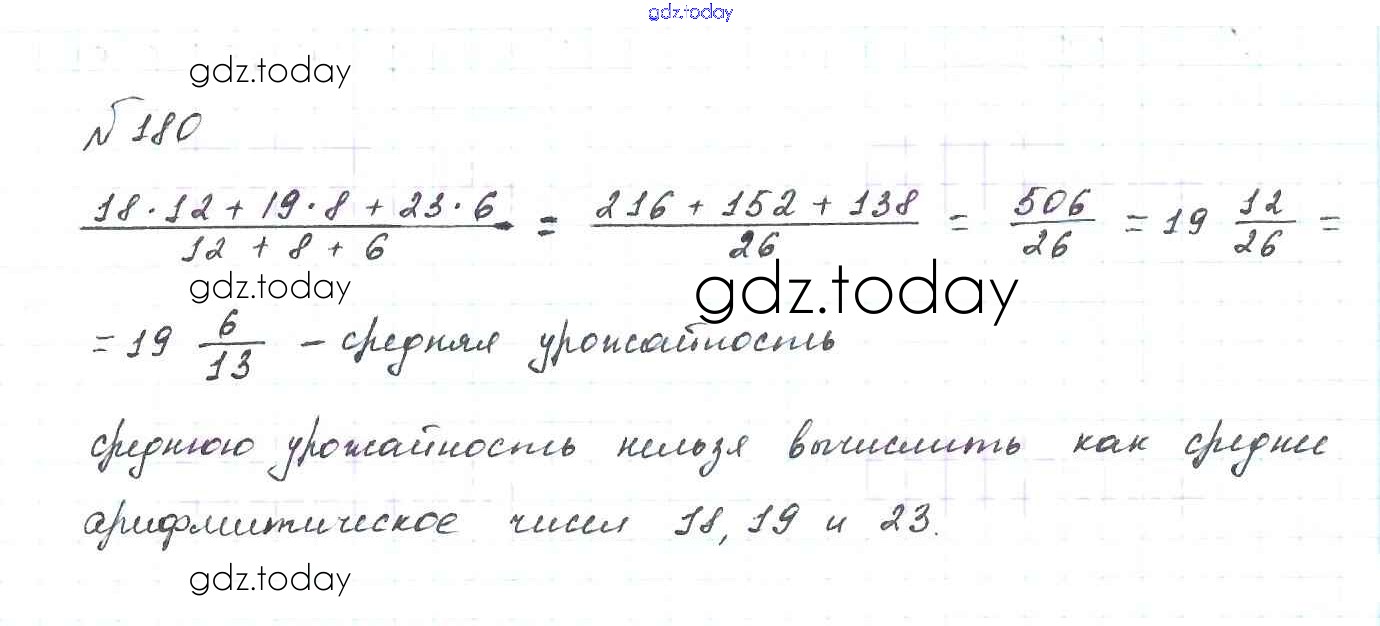 gdz.today
gdz.today
№180
18·12+19·8+23·6 / 12+8+6 = 216+152+138 / 26 = 506/26 = 19 12/26 =
gdz.today
gdz.today
= 19 6/13 – средняя урожайность
среднюю урожайность нельзя вычислить как среднее
арифмитическое чисел 18, 19 и 23.
gdz.today